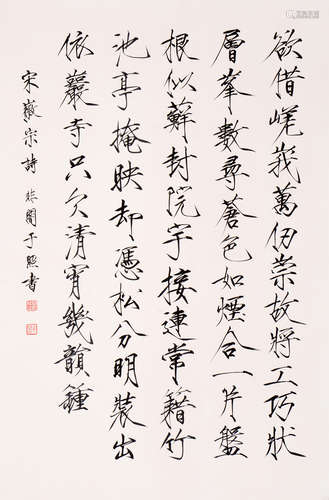 欲借嵯峩萬仞崇故將工巧狀
層峯數尋蒼色如煙合一片盤
根似蘚封院宇接連常籍竹
池亭掩映却憑松分明裝出
依巖寺只欠清宵幾韻鍾
宋徽宗詩 非闇于照書